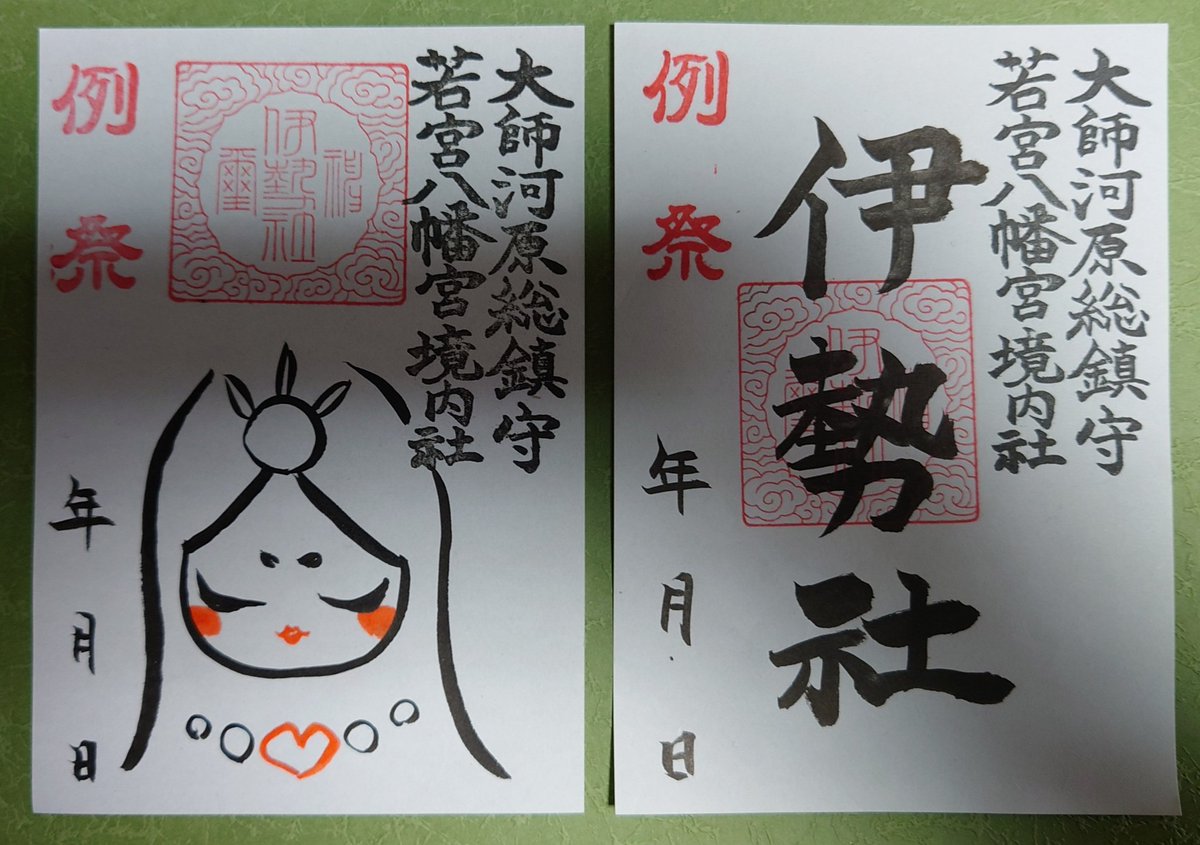 大師河原総鎮守
若宮八幡宮境内社
伊勢社
璽
例祭
年月日
大師河原総鎮守
若宮八幡宮境内社
伊勢社
例祭
年月日